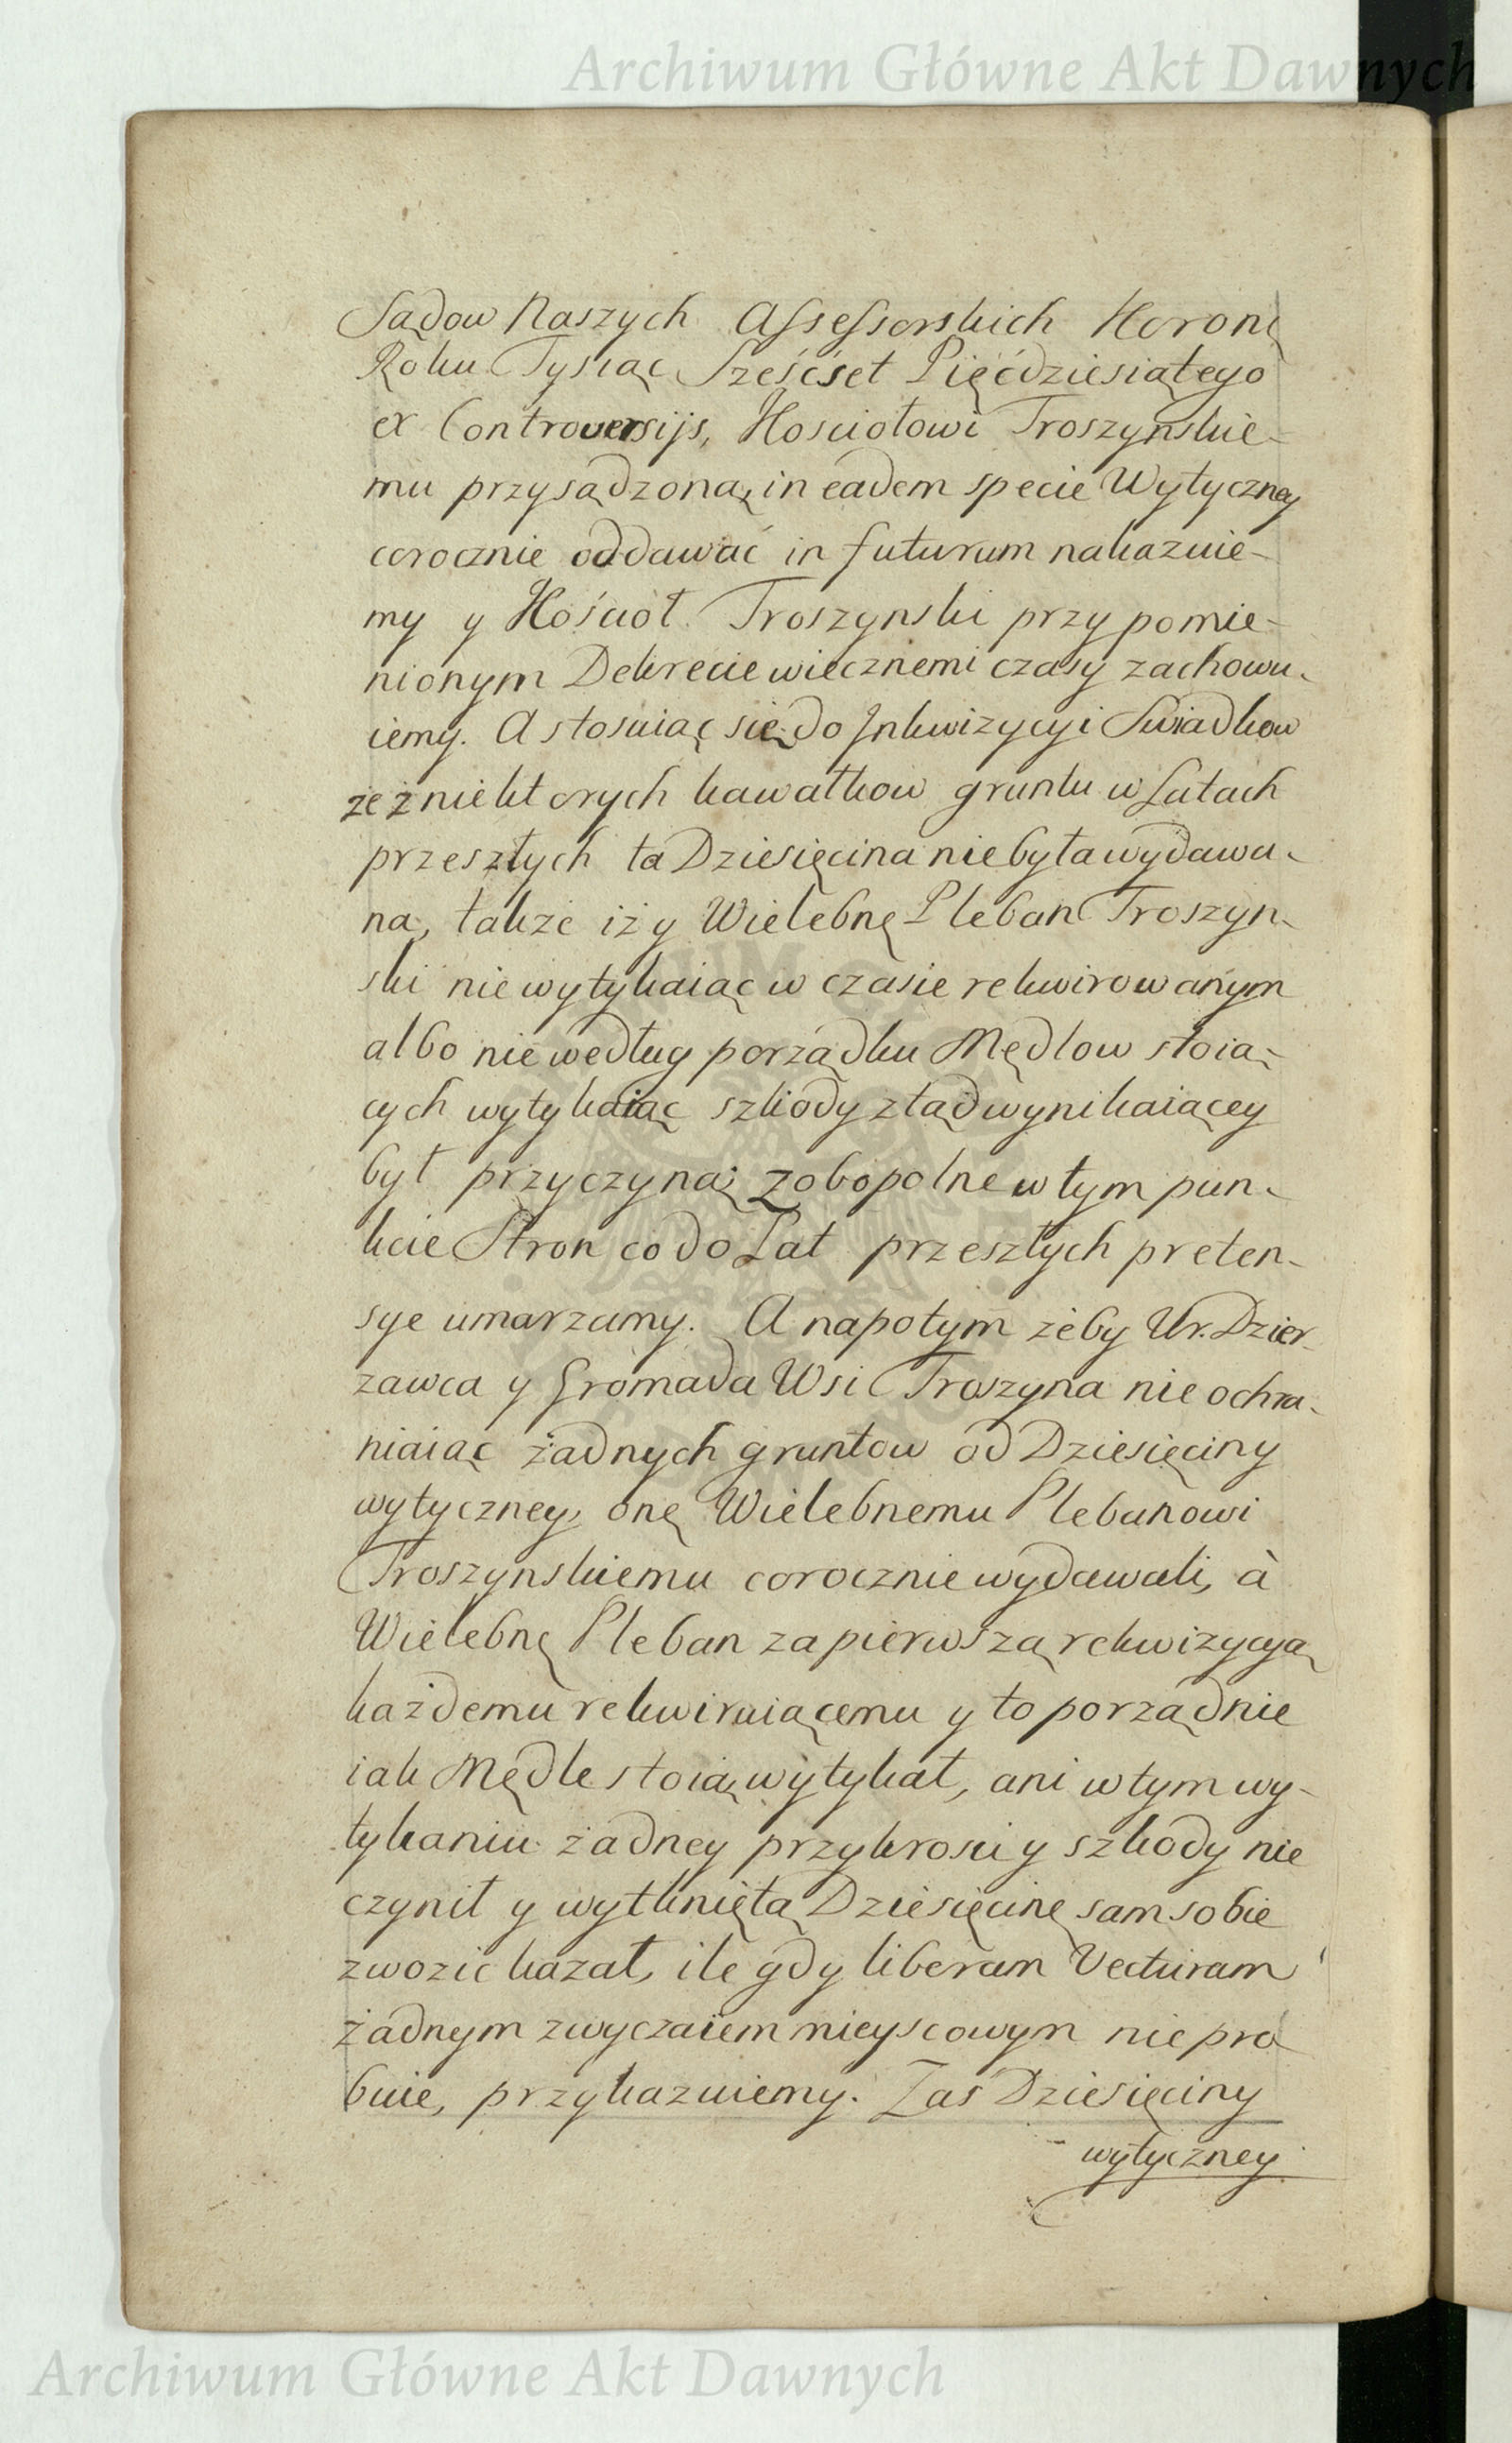 Archiwum Główne Akt Dawnych
Sądow Naszych Assessorskich Koron:
Roku Tysiąc Sześćset Pięćdziesiątego
ex Controversijs, Kosciołowi Troszynskie-
mu przysądzoną, in eadem specie Wytyczney
corocznie oddawać in futurum nakazuie-
my y Kościoł Troszynski przy pomie-
nionym Dekrecie wiecznemi czasy zachowu-
iemy. A stosuiąc się do Inkwizycyi Swiadkow
że z niektorych kawałkow gruntu w Latach
przeszłych ta Dziesięcina nie była wydawa-
na, także iż y Wielebny Pleban Troszyn-
ski nie wytykaiąc w czasie rekwirowanym
albo nie według porządku Mędlow stoią-
cych wytykaiąc szkody ztąd wynikaiącey
był przyczyną; zobopolne w tym pun-
kcie Stron co do Lat przeszłych preten-
sye umarzamy. A napotym żeby Ur. Dzier-
zawca y Gromada Wsi Troszyna nie ochra-
niaiąc żadnych gruntow od Dziesięciny
wytyczney, onę Wielebnemu Plebanowi
Troszynskiemu corocznie wydawali, à
Wielebny Pleban za pierwszą rekwizycyą
każdemu rekwiruiącemu y to porządnie
iak Mędle stoią, wytykał, ani w tym wy-
tykaniu żadney przykrosci y szkody nie
czynił y wytkniętą Dziesięcinę sam sobie
zwozic kazał, ile gdy liberam Vecturam
żadnym zwyczaiem mieyscowym nie pro
buie, przykazuiemy. Zas Dziesięciny
wytyczney
Archiwum Główne Akt Dawnych